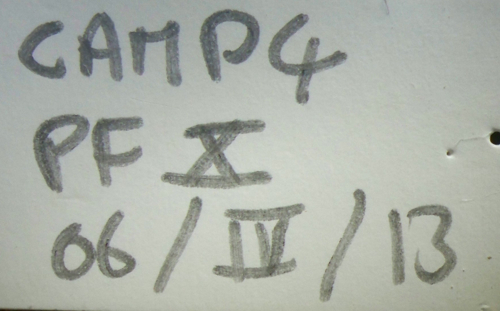 CAMP4
PF X
06/IV/13